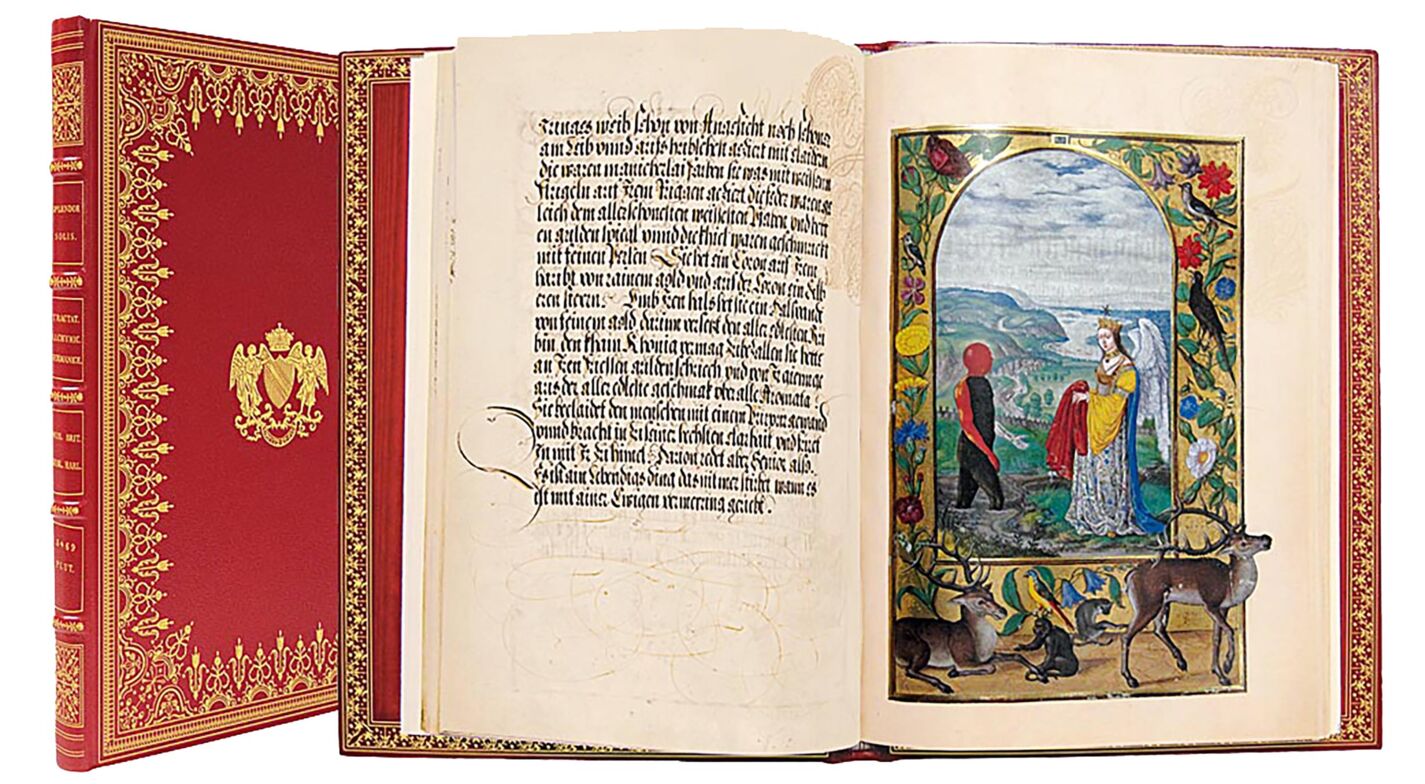 SPLENDOR
SOLIS.
TRACTAT.
ALCHYMIC.
GERMANICE.
BRIT.
HARL.
3469
PLUT.
Junges weib schön von Angesicht noch schöner
am Leib vnnd auffs geziert mit claidern
die waren manicherlai Farben sie was mit weissenn
Fligeln auf Irem Ruggen geziert die feder waren ge
leich dem allerschönesten weissesten Pfaben vnd hett
en gulden spiegl vnnd die khiel waren geschmuckt
mit feinen Perlen Sie het ein Coron auf Irem
haubt von rainem gold vnd auf der Coron ein Silb
eren steern. Vmb Iren hals het sie ein Halsband
von feinem gold darinn versezt den aller edlisten Ru
bin, den khain Khönig vermag Sie hette
an Iren Fiessen gulden schuech vnd von Ir gienng
aus der aller edlist geschmak vber alle Aromata
Sie beclaidet den menschen mit einem Purpur gewand
vnnd bracht In zu seiner hechsten clarhait vnd fiert
In mit Ir zu himel. Darvon redet Senior also.
Es ist ain Lebendigs ding das nit mer stirbet wann es
ist mit ainer Ewigen vermerung